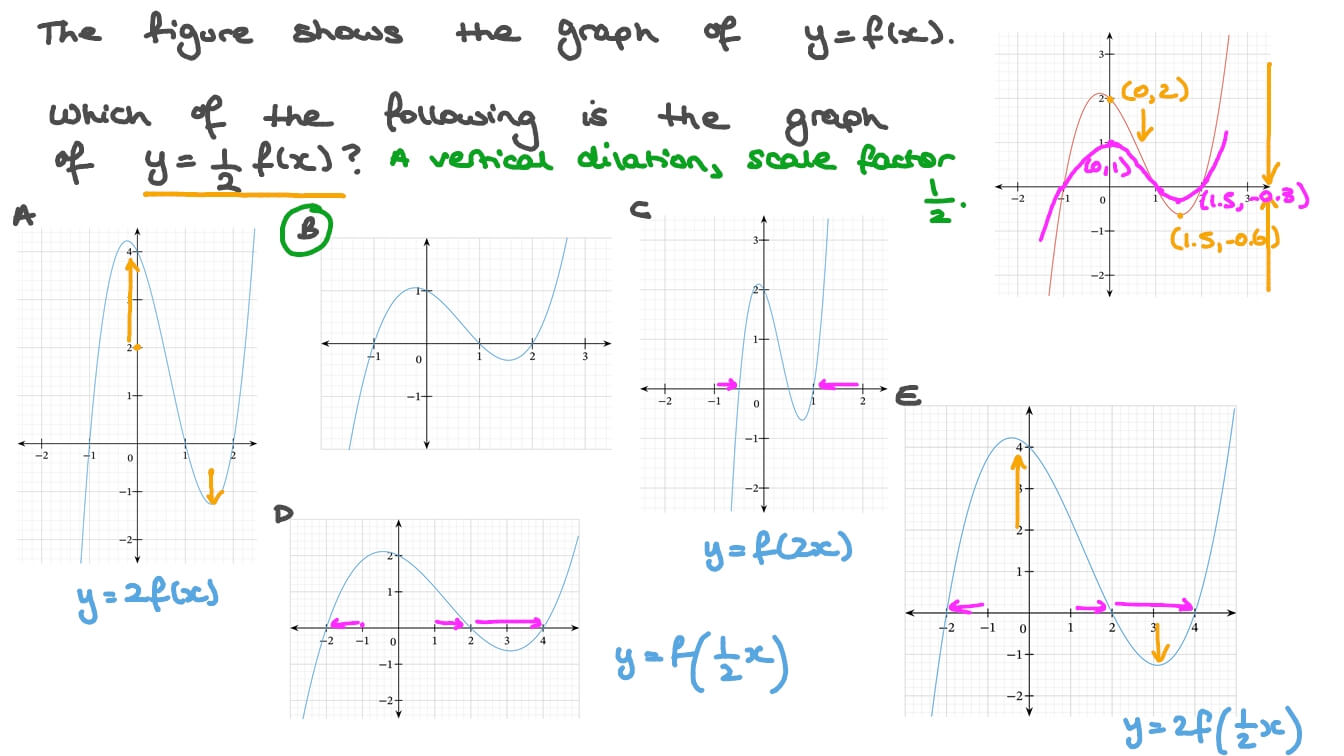 The figure shows the graph of y=f(x).
Which of the following is the graph
of y = 1/2 f(x)? A vertical dilation, scale factor 1/2.
3
2
1
0
−1
−2
−2
−1
1
2
3
(0,2)
(0,1)
(1.5, -0.3)
(1.5, -0.6)
A
4
2
1
−2
−1
0
1
2
−1
−2
y = 2f(x)
B
1
−1
0
1
2
3
−1
C
3
2
1
−2
−1
0
1
2
−1
−2
y = f(2x)
D
2
1
−2
−1
0
1
2
3
4
−1
−2
y = f(1/2 x)
E
4
3
2
1
−2
−1
0
1
2
3
4
−1
−2
y = 2f(1/2 x)